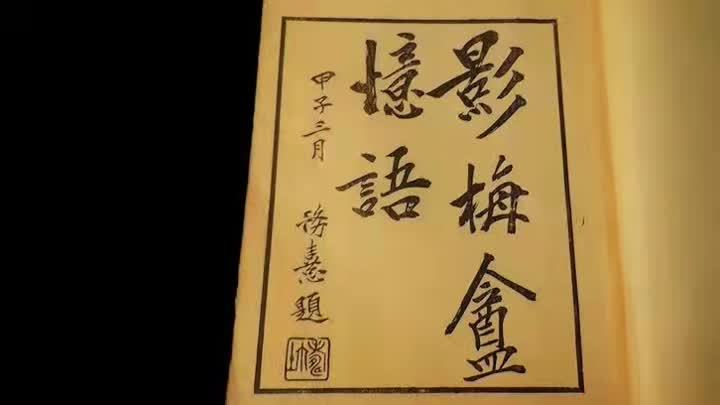 影梅盦
憶語
甲子三月
務憙題